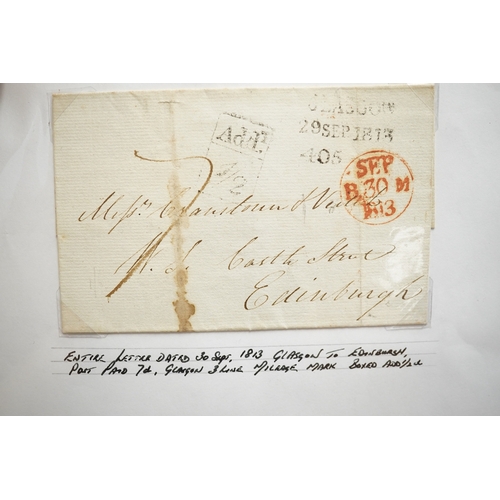 GLASGOW
29 SEP 1813
405
Add¹
½
7
SEP
B 30 M
1813
Messrs Cranstoun &
W. S. Castle Street
Edinburgh
ENTIRE LETTER DATED 30 SEPT, 1813 GLASGOW TO EDINBURGH,
POST PAID 7d, GLASGOW 3 LINE MILEAGE MARK BOXED ADD½d